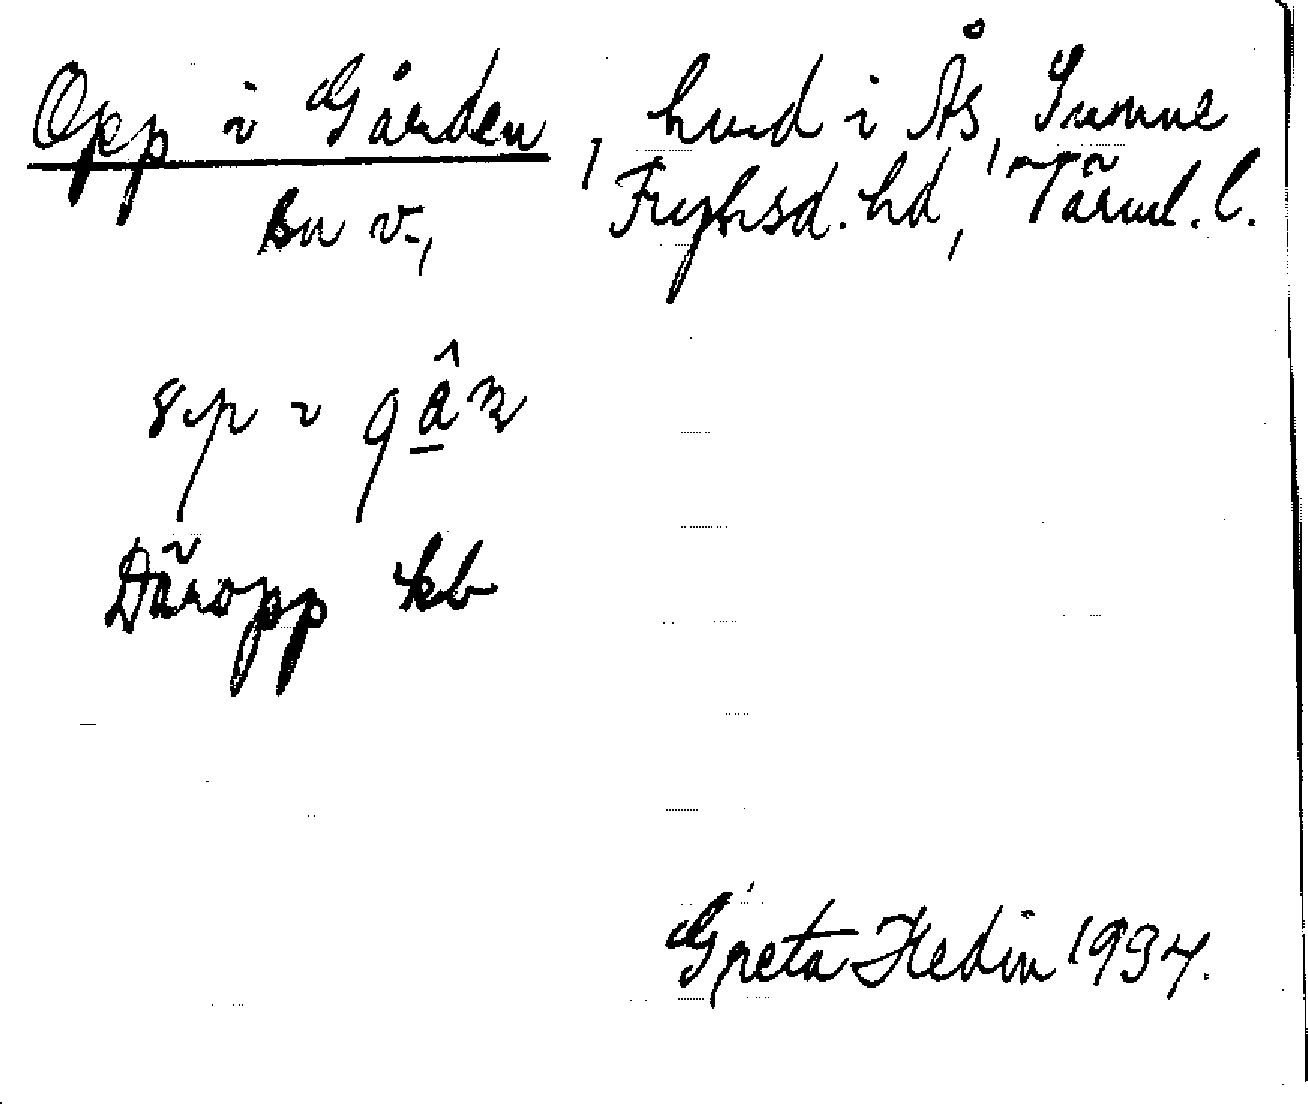 Opp i Gården, hmd i Ås, Sunne
Bn v., Fryksd. hd, Värml. l.
Däropp kb
Greta Hedin 1934.